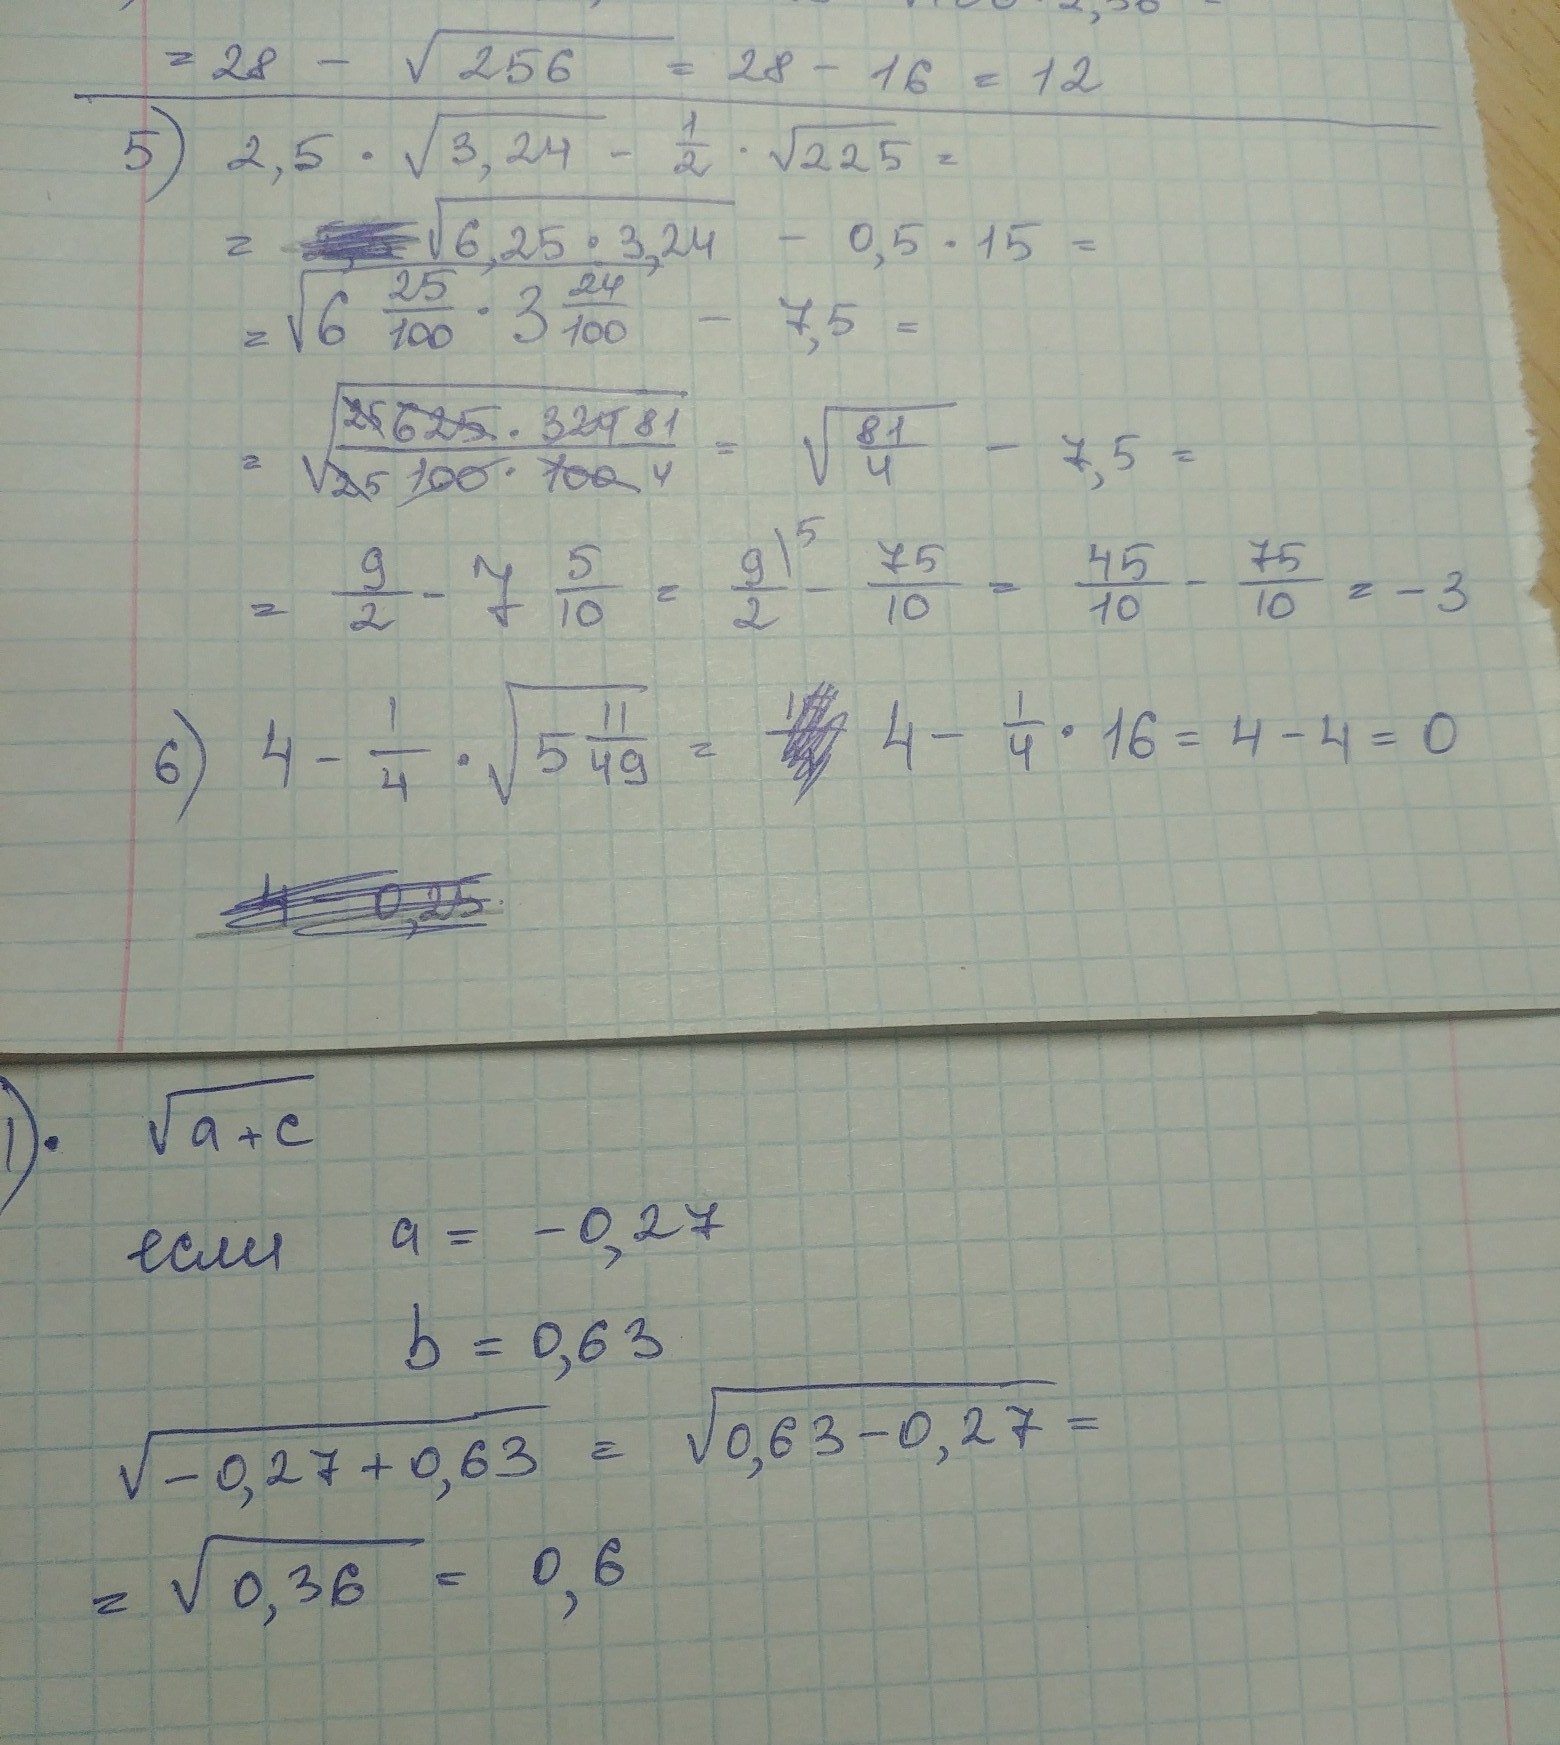 = 28 - √256 = 28 - 16 = 12
5) 2,5 · √3,24 - 1/2 · √225 =
= √6,25 · 3,24 - 0,5 · 15 =
= √6 25/100 · 3 24/100 - 7,5 =
= √25 625 · 324 81 / 25 100 · 100 4 = √81/4 - 7,5 =
= 9/2 - 7 5/10 = 9/2\5 - 75/10 = 45/10 - 75/10 = -3
6) 4 - 1/4 · √5 11/49 = 4 - 1/4 · 16 = 4 - 4 = 0
4 - 0,25
1). √a+c
если a = -0,27
b = 0,63
√-0,27+0,63 = √0,63-0,27 =
= √0,36 = 0,6